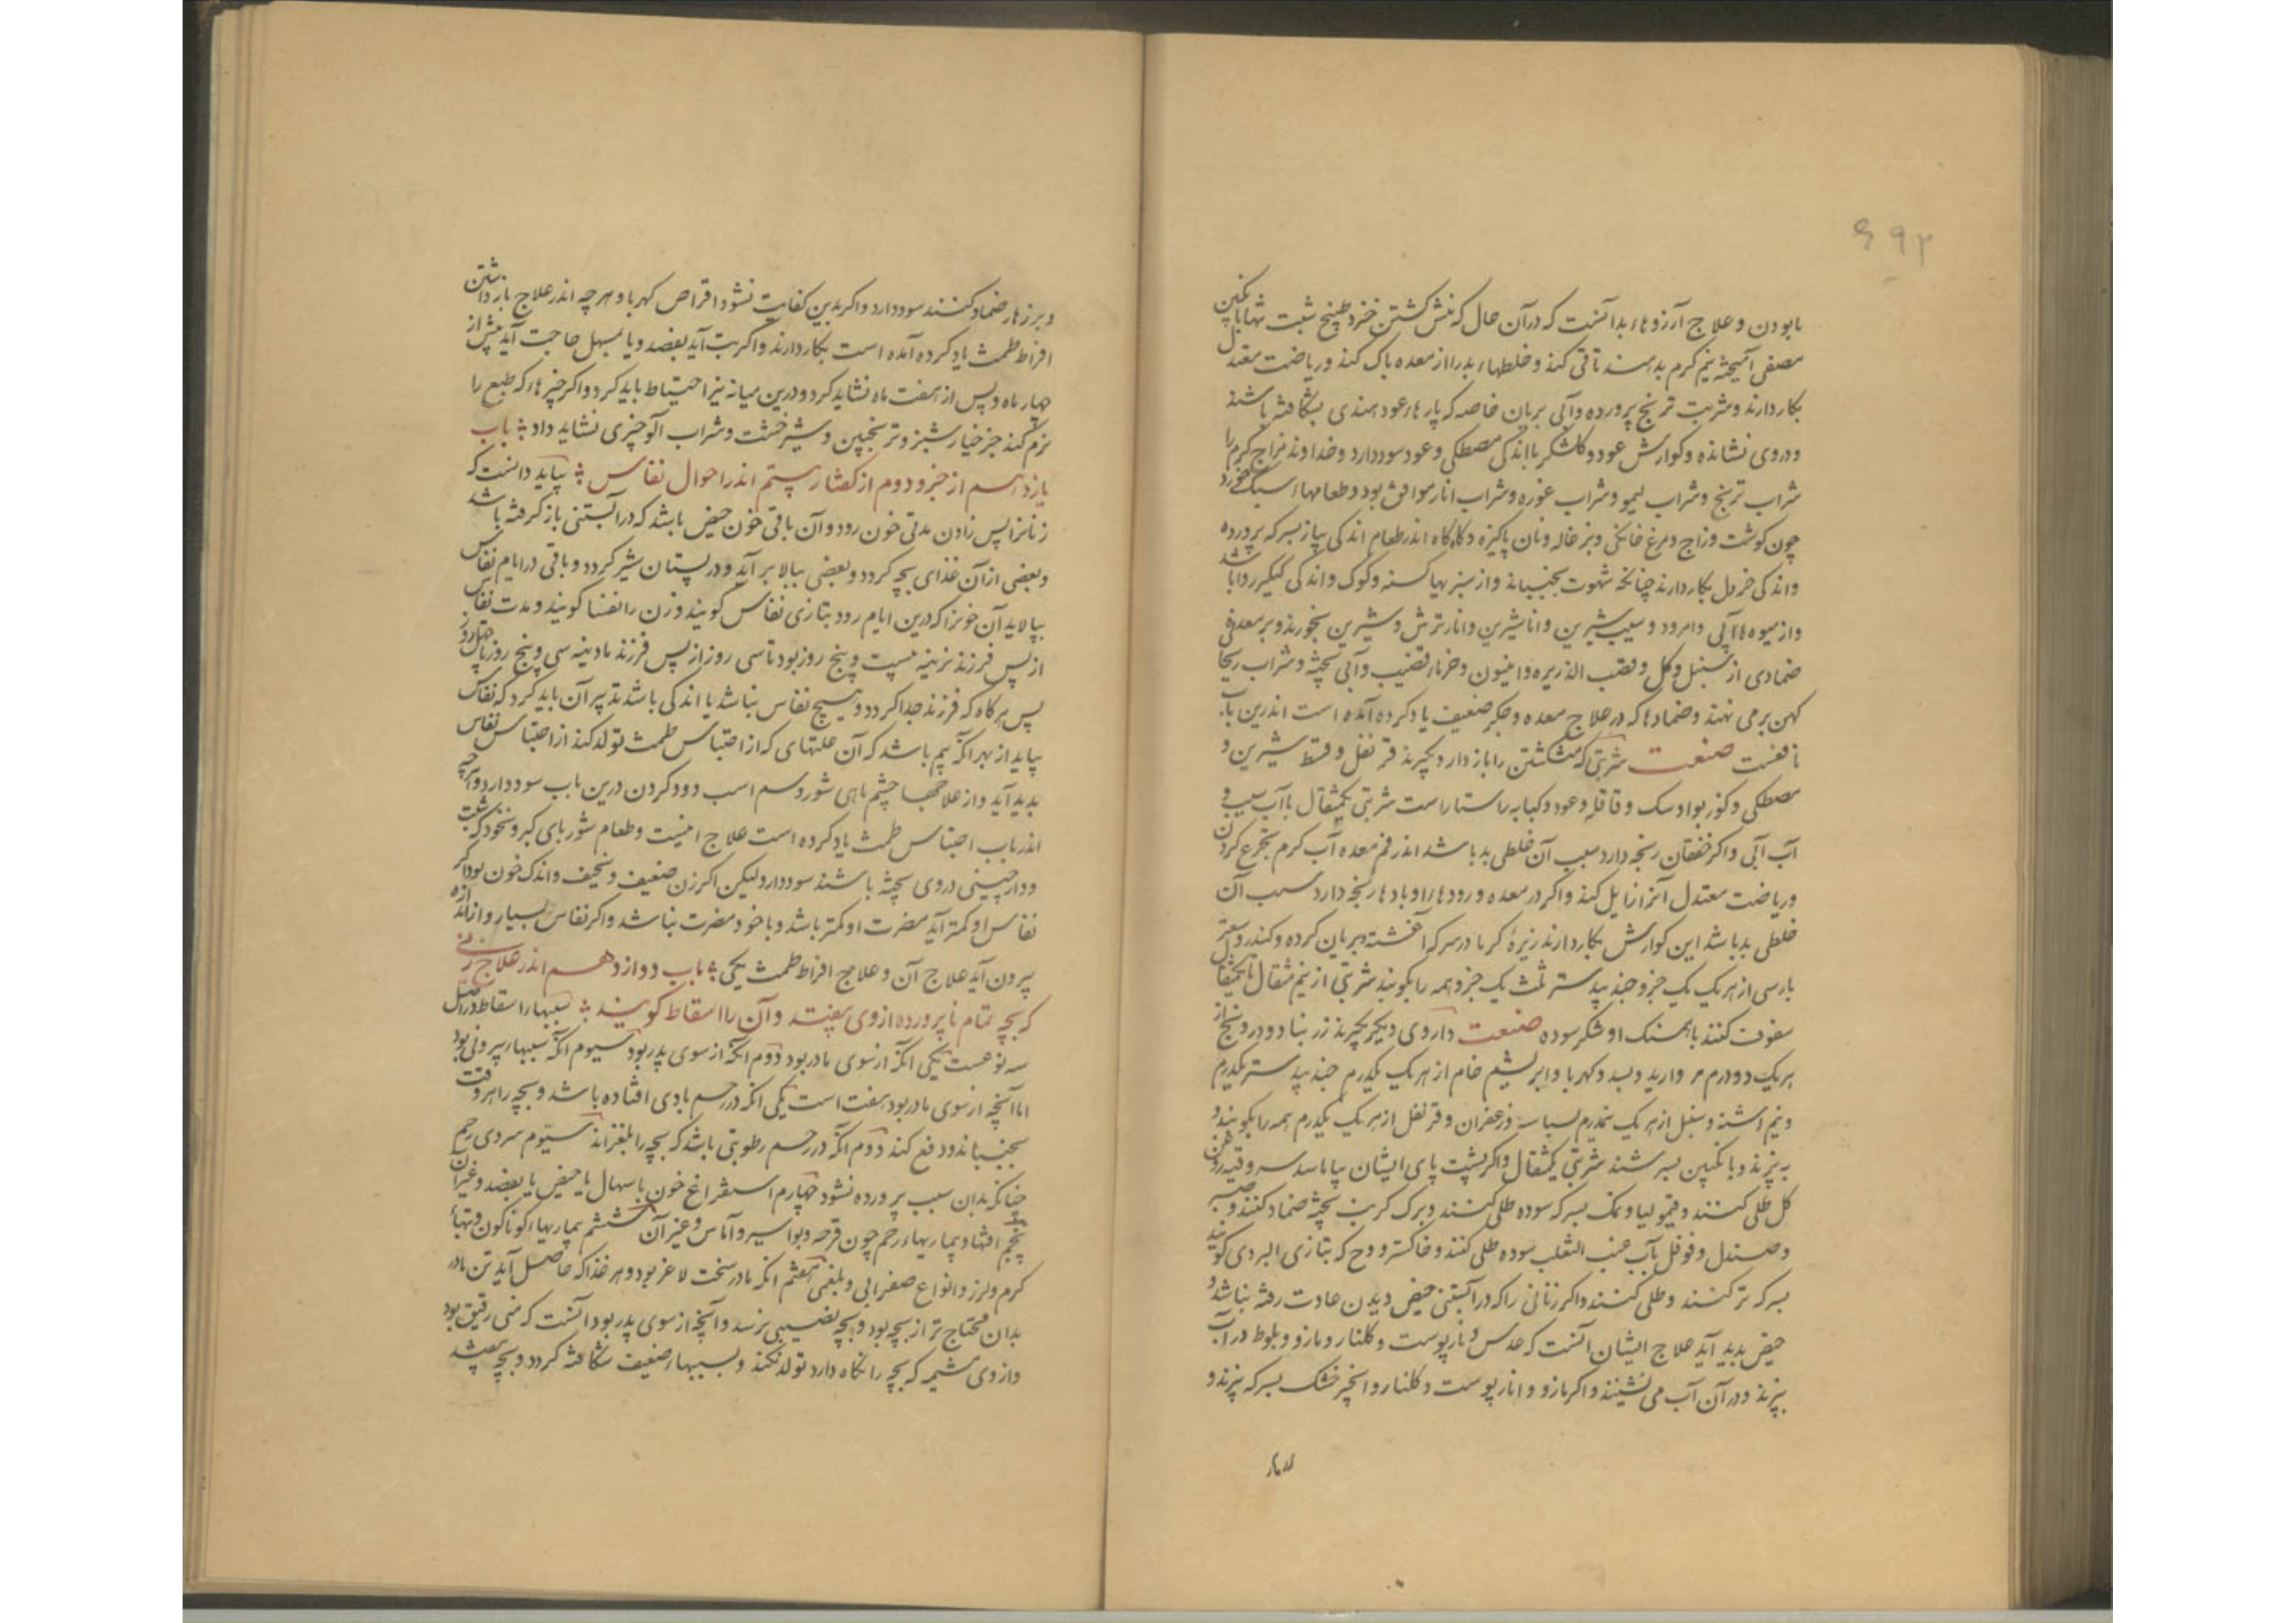 ۶۹۲
بابودن و علاج آرزوهاء بد آنست که در آن حال که منش کشتن خزد طبیخ شبت تنها با انکبین
مصفی آمیخته نیم کرم بدهند تا قی کند و خلطهاء بد را از معده پاک کند و ریاضت معتدل
بکار دارند و شربت ترنج پرورده و آبی بریان خاصه که پارهاء عود هندی بشکافته باشند
و در وی نشانده و کوارش عود و کلشکر با اندکی مصطکی و عود سود دارد و خداوند مزاج کرم را
شراب ترنج و شراب لیمو و شراب غوره و شراب انار موافق بود و طعامهاء سبک خورد
چون کوشت دراج و مرغ خانکی و بزغاله و نان پاکیزه و کاه کاه اندر طعام اندکی پیاز بسرکه پرورده
و اندکی خردل بکار دارند چنانکه شهوت بجنباند و از سبزیها کسنه و کوک و اندکی کیکیز روا باشد
و از میوه ها آبی و امرود و سیب شیرین و انار شیرین و انار ترش و شیرین بخورند و بر معده
ضمادی از سنبل و کل و قصب الذریره و انیسون و خرماء قضیب و آبی پخته و شراب ریحانی
کهن بر می نهند و ضمادها که در علاج معده و جکر ضعیف یاد کرده آمده است اندرین باب
نافعست صنعت شربتی که منش کشتن را باز دارد بکیرند قرنفل و قسط شیرین و
مصطکی و کوز بوا و سک و قاقله و عود و کبابه راستاراست شربتی یکمثقال با آب سیب و
آب آبی و اکر خفقان رنجه دارد سبب آن خلطی بد باشد اندر فم معده آب کرم بتجرع کردن
و ریاضت معتدل آنرا زایل کند و اکر در معده و رودهاء او بادها رنجه دارد سبب آن
خلطی بد باشد این کوارش بکار دارند زیرهٔ کرمانی در سرکه آغشته و بریان کرده و کندر و سعتر
پارسی از هر یک یک جزو جند بیدستر ثلث یک جزو همه را بکوبند شربتی از نیم مثقال تا یکمثقال
سفوف کنند با همسنک او شکر سوده صنعت داروی دیکر بکیرند زرنباد و درونج از
هر یک دو درم مروارید و بسد و کهربا و ابریشم خام از هر یک یکدرم جند بیدستر یکدرم
و نیم اشنه و سنبل از هر یک نیمدرم بسباسه و زعفران و قرنفل از هر یک یکدرم همه را بکوبند و
بپزند و با نکبین بسرشند شربتی یکمثقال و اکر پشت پای ایشان بیاماسد سرو قیروطی روغن
کل طلی کنند و قیمولیا و نمک بسرکه سوده طلی کنند و برک کرنب پخته ضماد کنند و صبر
و صندل و فوفل بآب عنب الثعلب سوده طلی کنند و خاکستر دوح که بتازی البردی کویند
بسرکه تر کنند و طلی کنند و اکر زنانی را که در آبستنی حیض دیدن عادت رفته نباشد و
حیض بدید آید علاج ایشان آنست که عدس و نار پوست و کلنار و مازو و بلوط در آب
بپزند و در آن آب می نشینند و اکر مازو و انار پوست و کلنار و انجیر خشک بسرکه بپزند و
و بر زهار ضماد کنند سود دارد و اکر بدین کفایت نشود اقراص کهربا و هر چه اندر علاج باز داشتن
افراط طمث یاد کرده آمده است بکار دارند و اکر بتب آید بفصد و یا بمسهل حاجت آید پیش از
چهار ماه و پس از هفت ماه نشاید کرد و درین میانه نیز احتیاط باید کرد و اکر چیزهاء که طبع را
نرم کند جز خیارشنبر و ترنجبین و شیر خشت و شراب آلو چیزی نشاید داد باب
یازدهم از جزو دوم از کفتار بیستم اندر احوال نفاس بباید دانست که
زنانرا پس زادن مدتی خون رود و آن باقی خون حیض باشد که در آبستنی باز کرفته باشد
و بعضی از آن غذای بچه کردد و بعضی ببالا بر آید و در پستان شیر کردد و باقی در ایام نفاس
بپالاید آن خونرا که درین ایام رود بتازی نفاس کویند و زن را نفسا کویند و مدت نفاس
از پس فرزند نرینه بیست و پنج روز بود تا سی روز از پس فرزند مادینه سی و پنج روز تا چهل روز
پس هر کاه که فرزند جدا کردد و هیچ نفاس نباشد یا اندکی باشد تدبیر آن باید کرد که نفاس
بیاید از بهر انکه بیم باشد که آن علتهای که از احتباس طمث تولد کند از احتباس نفاس
بدید آید و از علاجها چشم ماهی شور و سم اسب دود کردن درین باب سود دارد و هر چه
اندر باب احتباس طمث یاد کرده است علاج اینست و طعام شوربای کبر و نخود که شبت
و دارچینی در وی پخته باشند سود دارد لیکن اکر زن ضعیف و نحیف و اندک خون بود اکر
نفاس او کمتر آید مضرت او کمتر باشد و یا خود مضرت نباشد و اکر نفاس بسیار و از اندازه
بیرون آید علاج آن و علاج افراط طمث یکی باب دوازدهم اندر علاج زنی
که بچه تمام ناپرورده از وی بیفتد و آن را اسقاط کویند سببهاء اسقاط در اصل
سه نوعست یکی انکه از سوی مادر بود دوم انکه از سوی پدر بود سیوم انکه سببهاء بیرونی بود
اما آنچه از سوی مادر بود هفت است یکی انکه در رحم بادی افتاده باشد و بچه را هر وقت
بجنباند و دفع کند دوم انکه در رحم رطوبتی باشد که بچه را بلغزاند سیوم سردی رحم
چنانکه بدان سبب پرورده نشود چهارم استفراغ خون با سهال یا حیض یا بفصد و غیر آن
پنجم افتهاء و بیماریهاء رحم چون قرحه و بواسیر و آماس و غیر آن ششم بیماریهاء کوناکون و تبهاء
کرم و لرز و انواع صفرایی و بلغمی هفتم انکه مادر سخت لاغر بود و هر غذا که حاصل آید تن مادر
بدان محتاج تر از بچه بود و بچه نصیبی نرسد و آنچه از سوی پدر بود آنست که منی رقیق بود
و از وی مشیمه که بچه را نکاه دارد تولد نکند و بسببهاء ضعیف شکافته کردد و بچه بیفتد